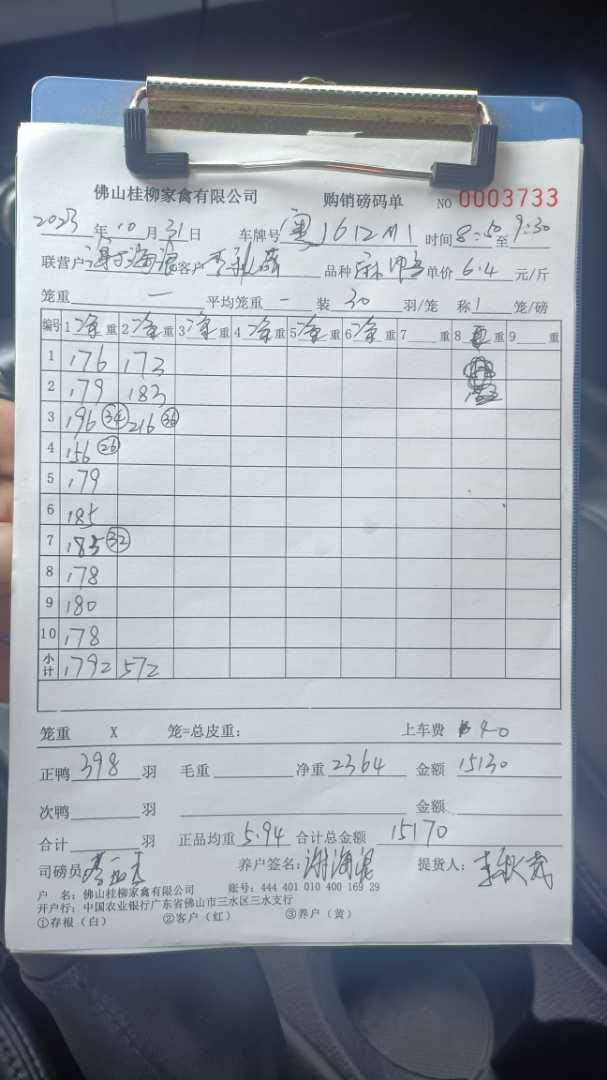 佛山桂柳家禽有限公司 购销磅码单 NO 0003733
2023年10月31日 车牌号 粤J612M1 时间8:50至9:30
联营户 海 客户 李 品种 麻 单价 6.4 元/斤
笼重 — 平均笼重 — 装 30 羽/笼 称 1 笼/磅
编号 1净重 2净重 3净重 4净重 5净重 6净重 7 重 8 重 9 重
1 176 173
2 179 183
3 196 ㉞ 216 ㊱
4 156 ㉖
5 179
6 185
7 185 ㉜
8 178
9 180
10 178
小计 1792 572
笼重 X 笼=总皮重: 上车费 40
正鸭 398 羽 毛重 净重 2364 金额 15130
次鸭 羽 金额
合计 羽 正品均重 5.94 合计总金额 15170
司磅员 养户签名: 谢海 提货人: 李秋
户 名: 佛山桂柳家禽有限公司 账号: 444 401 010 400 169 29
开户行: 中国农业银行广东省佛山市三水区三水支行
①存根(白) ②客户(红) ③养户(黄)